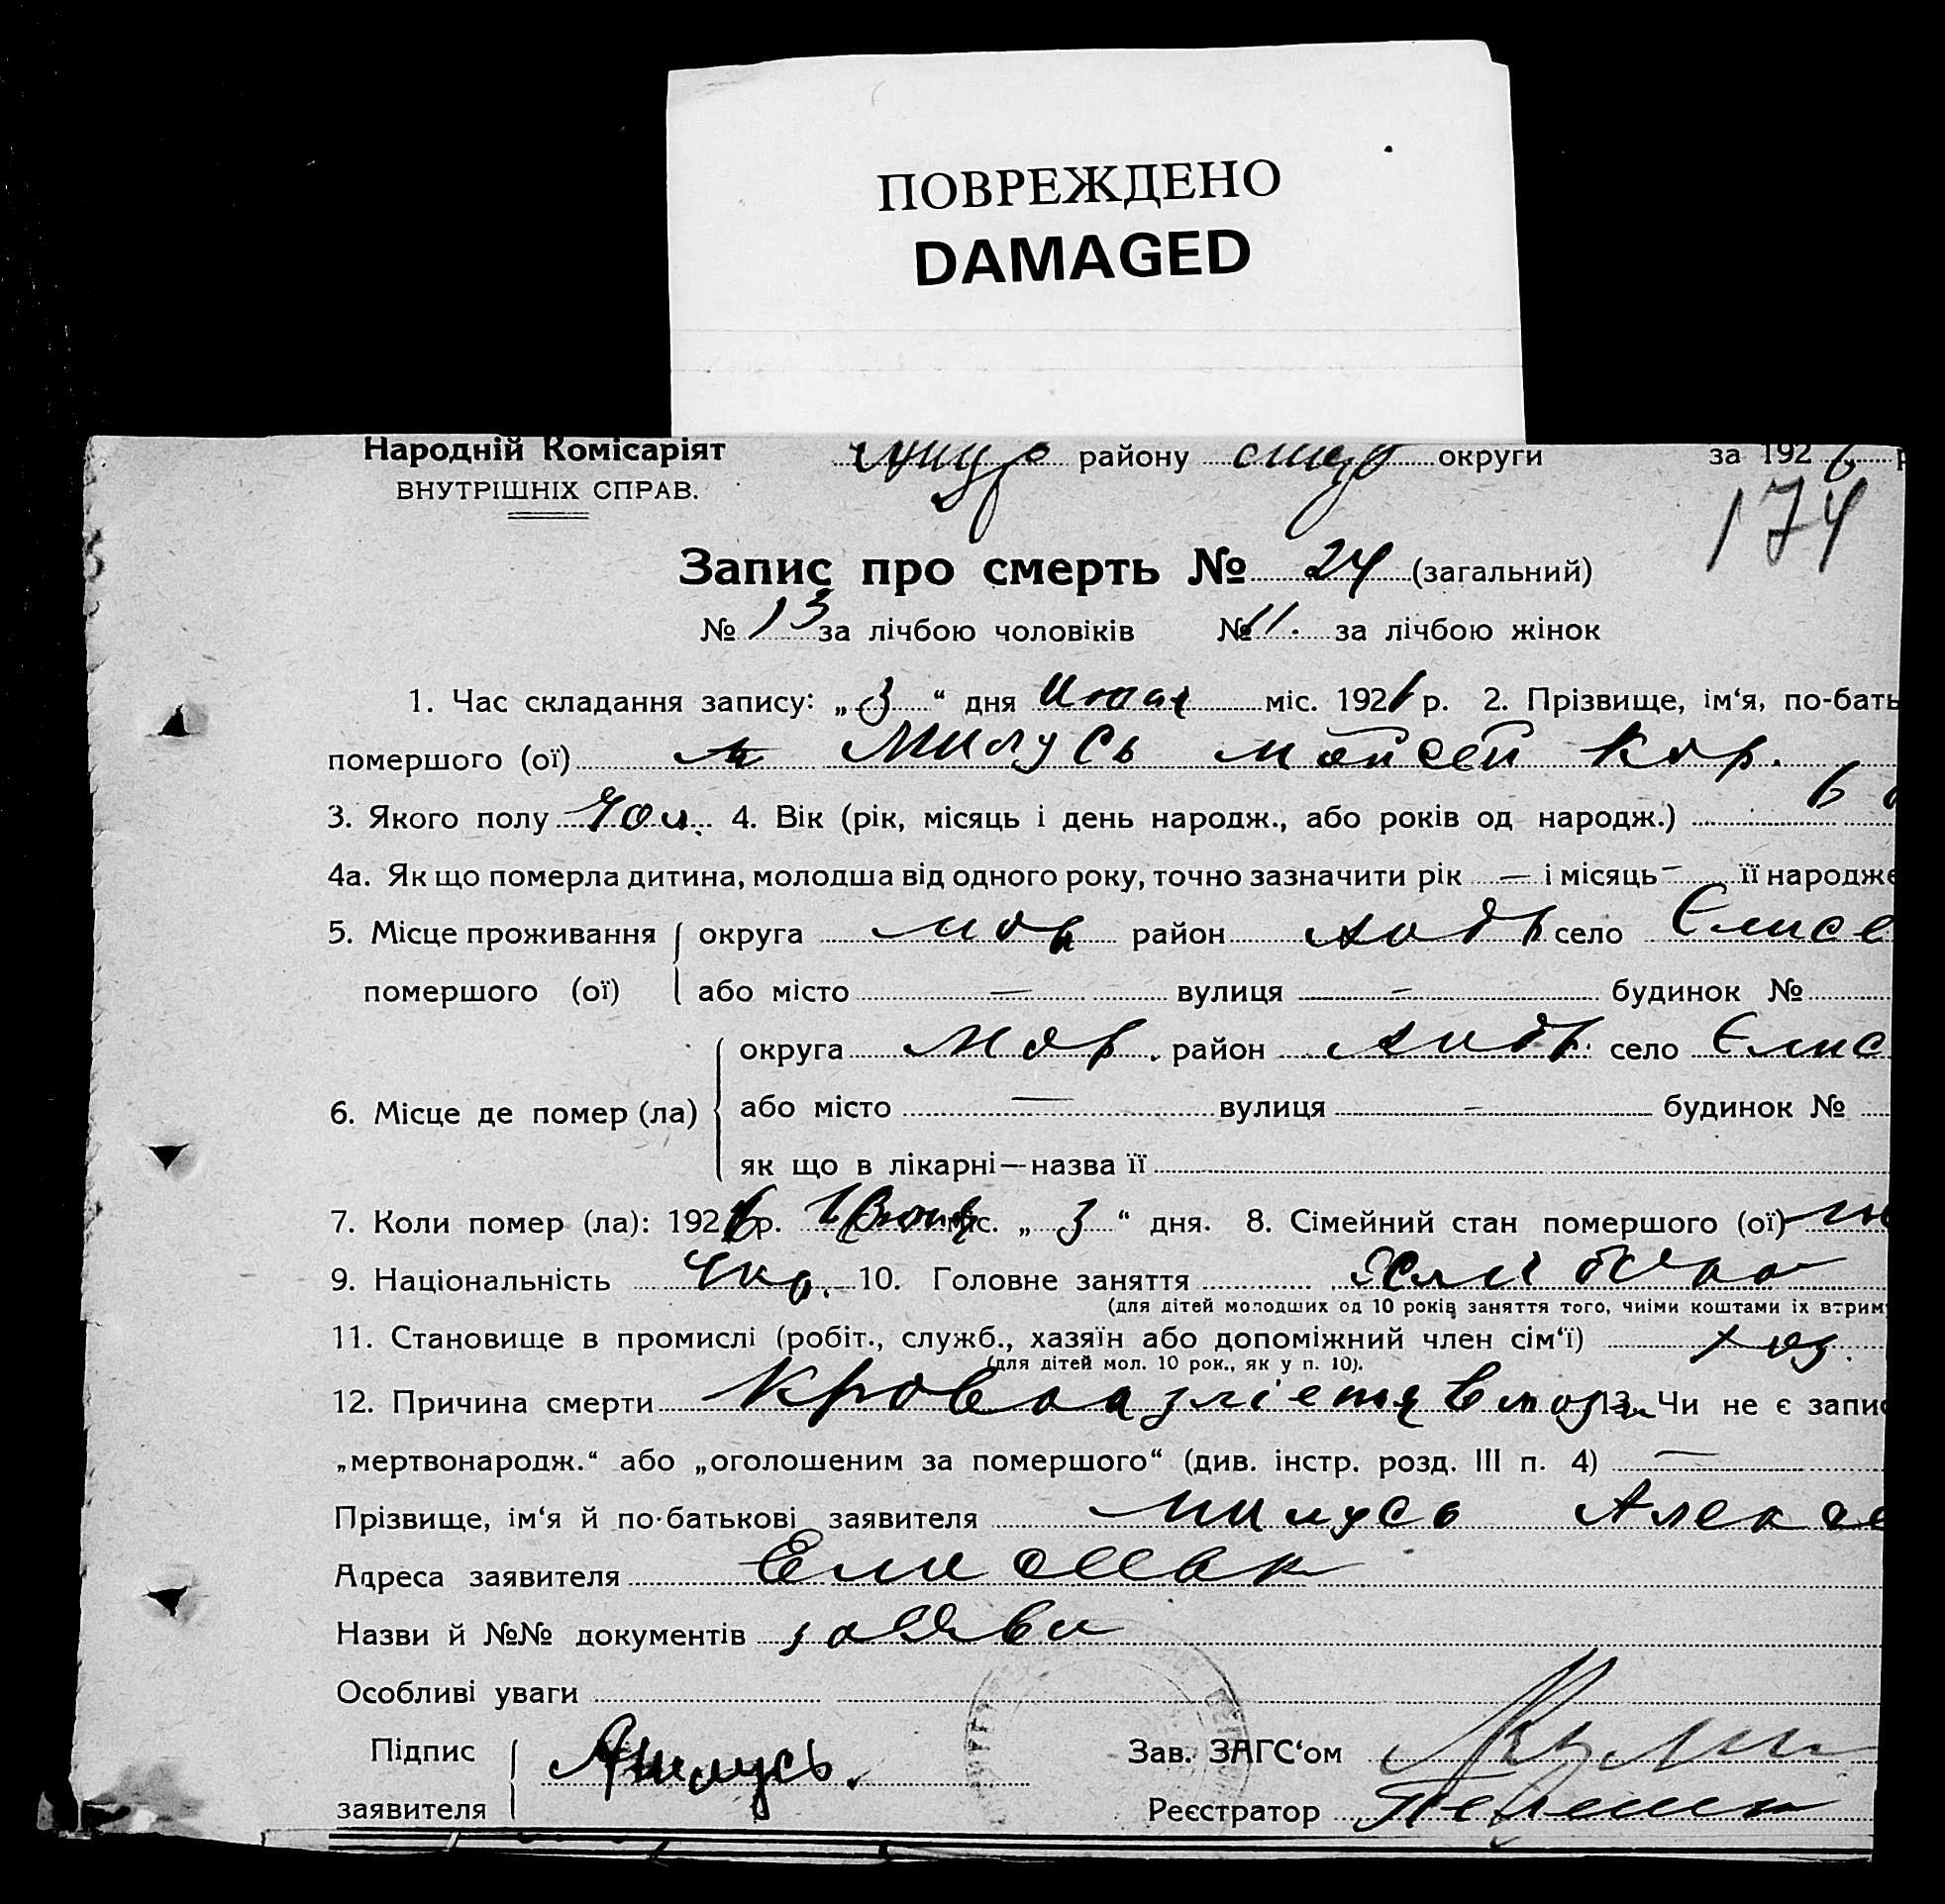 ПОВРЕЖДЕНО
DAMAGED
Народній Комісаріят району округи за 1926 р
ВНУТРІШНІХ СПРАВ.
174
Запис про смерть № 24 (загальний)
№ 13 за лічбою чоловіків № 11. за лічбою жінок
1. Час складання запису: „3“ дня міс. 1926 р. 2. Прізвище, ім‘я, по-бать
помершого (ої) Милусь Мойсей Кор.
3. Якого полу Чол. 4. Вік (рік, місяць і день народж., або років од народж.) 6
4а. Як що померла дитина, молодша від одного року, точно зазначити рік — і місяць — її народже
5. Місце проживання округа район село Єлисе
помершого (ої) або місто — вулиця — будинок №
округа район село Єлис
6. Місце де помер (ла) або місто — вулиця — будинок №
як що в лікарні—назва її
7. Коли помер (ла): 1926 р. міс. „3“ дня. 8. Сімейний стан помершого (ої)
9. Національність Укр. 10. Головне заняття
(для дітей молодших од 10 років заняття того, чиїми коштами їх втрим
11. Становище в промислі (робіт., служб., хазяїн або допоміжний член сім‘ї) хоз.
(для дітей мол. 10 рок., як у п. 10).
12. Причина смерти 13. Чи не є запис
„мертвонародж.“ або „оголошеним за помершого“ (див. інстр. розд. III п. 4) —
Прізвище, ім‘я й по-батькові заявителя Милусь Алексе
Адреса заявителя
Назви й №№ документів заяви
Особливі уваги
Підпис Амилусь. Зав. ЗАГС‘ом
заявителя Реєстратор